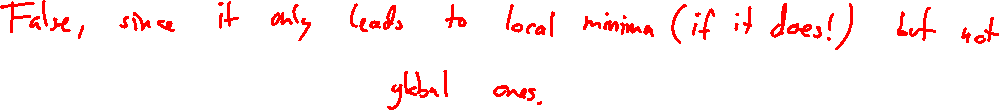 False, since it only leads to local minima (if it does!) but not
global ones.